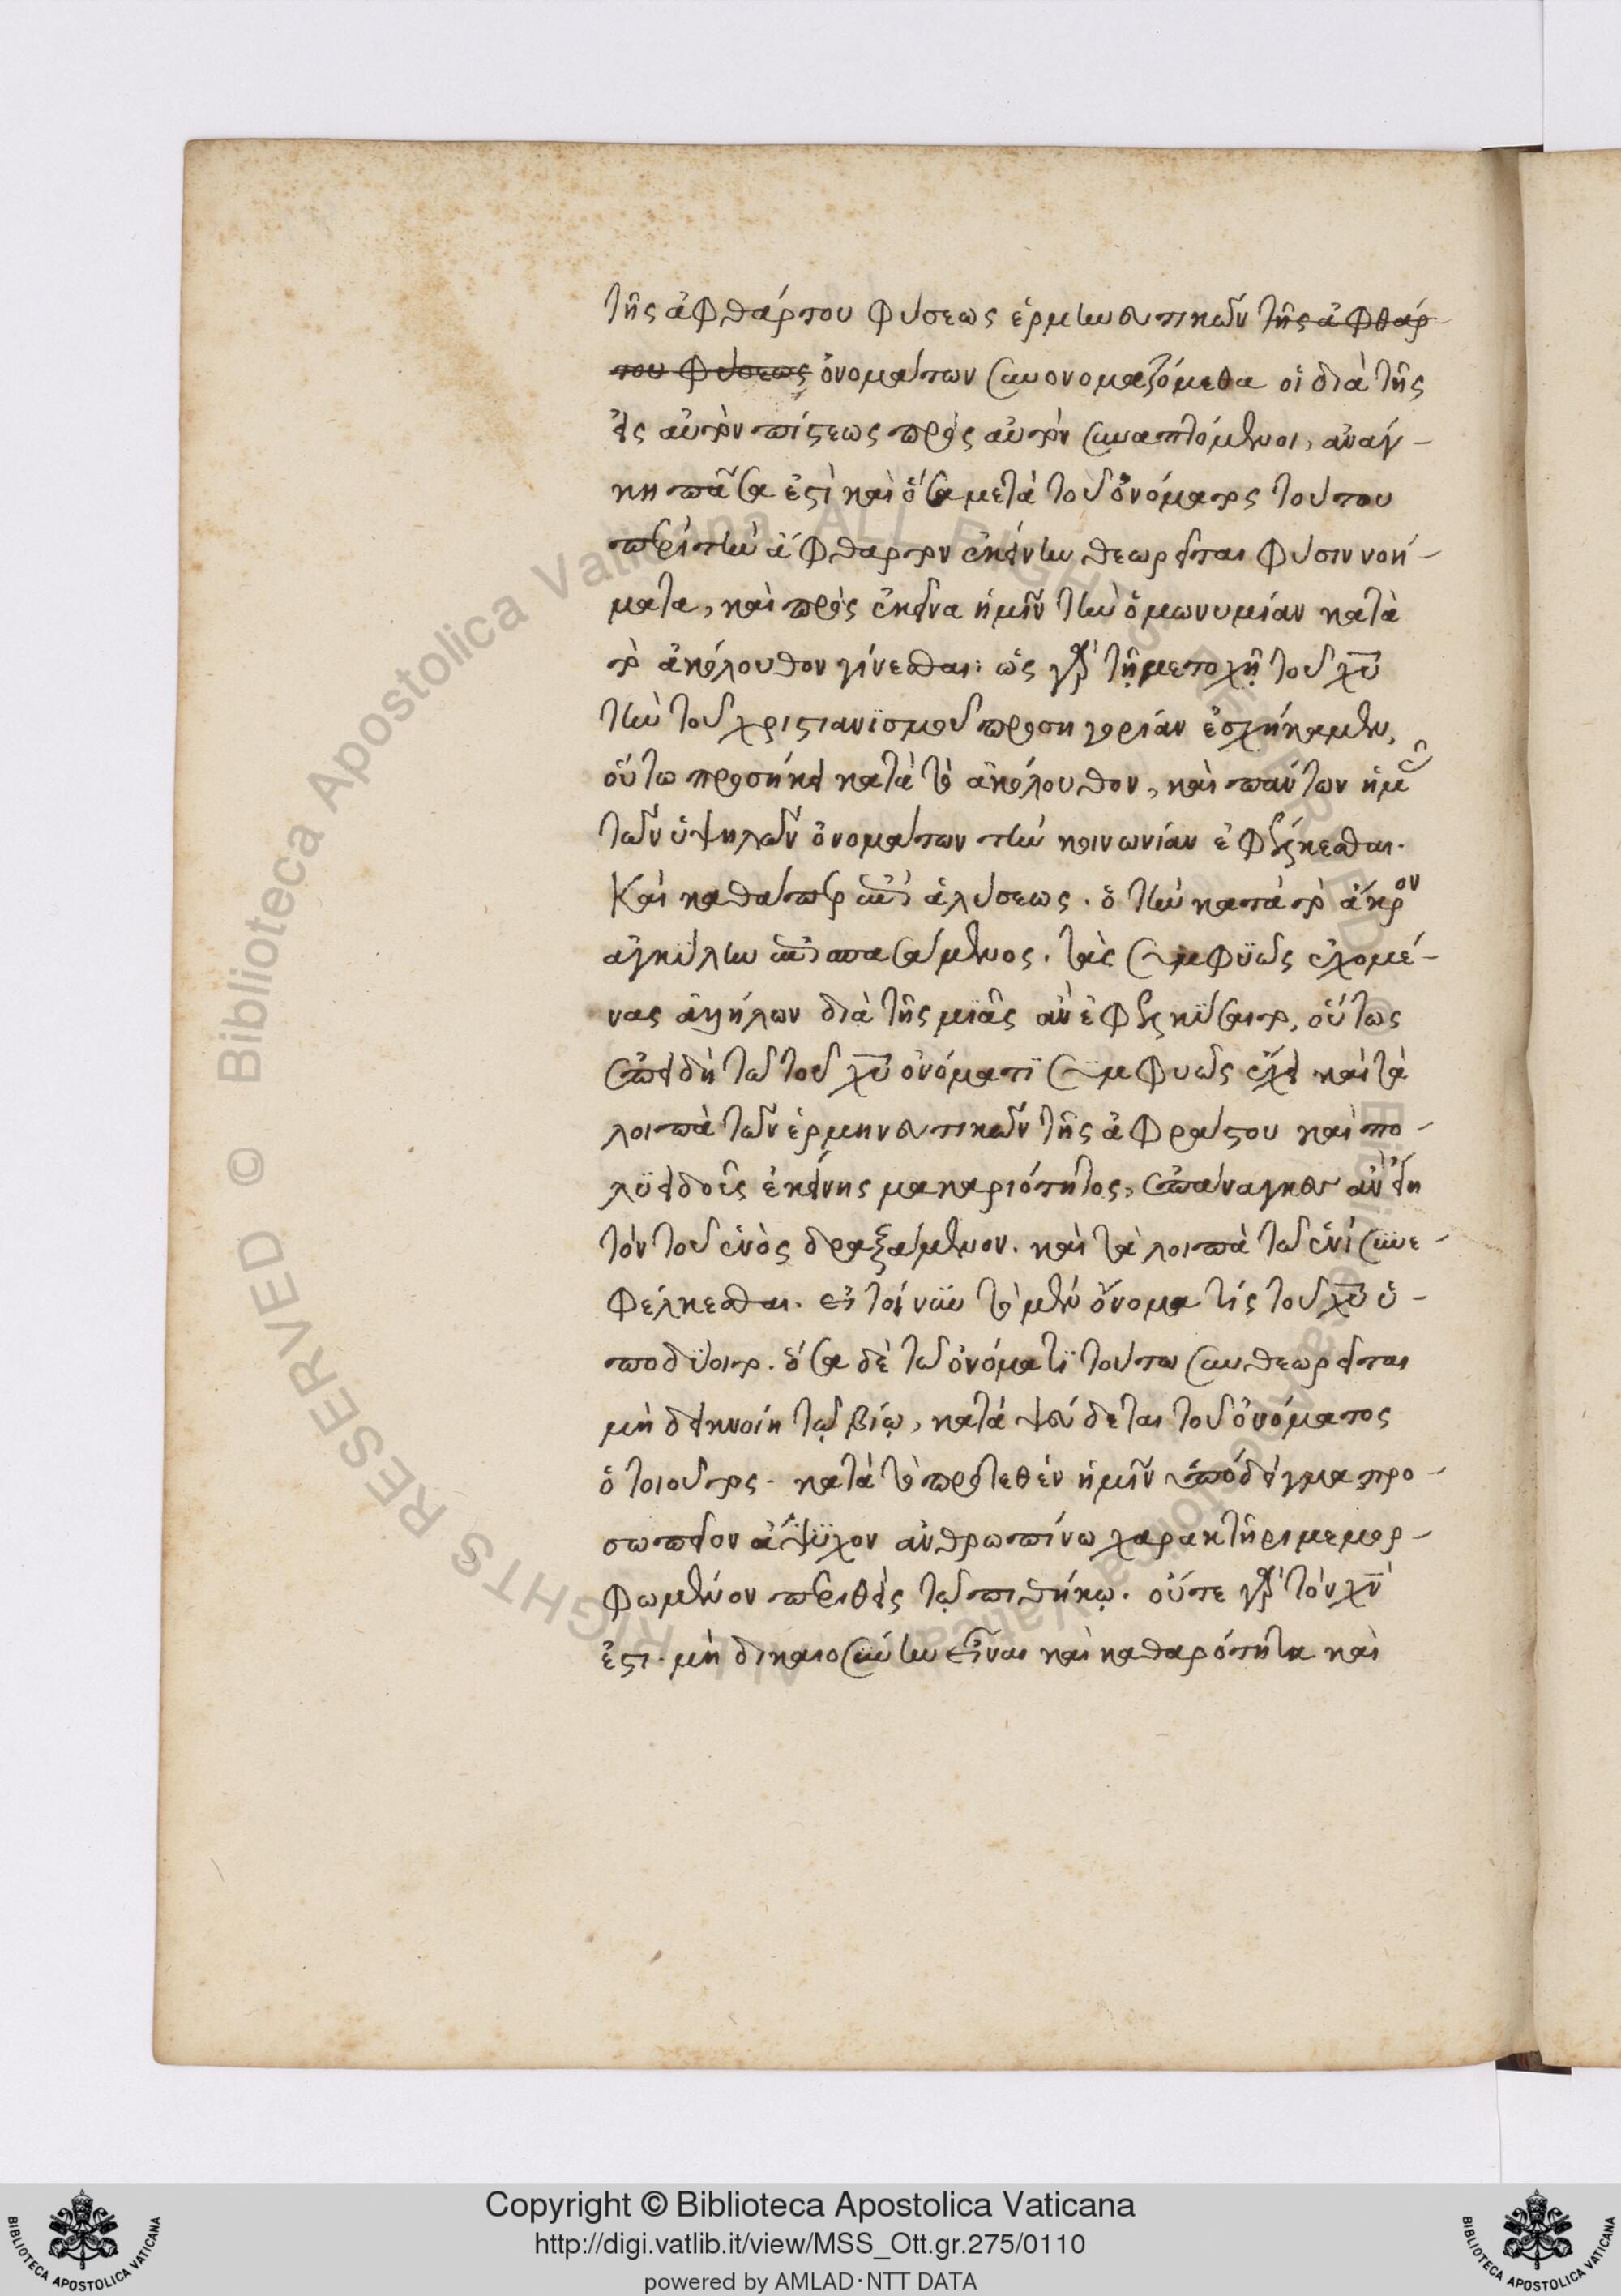 τῆς ἀφθάρτου φύσεως ἑρμηνευτικῶν τῆς ἀφθάρ-
του φύσεως ὀνομάτων συνονομαζόμεθα οἱ διὰ τῆς
εἰς αὐτὸν πίστεως πρὸς αὐτὸν συναπτόμενοι, ἀνάγ-
κη πᾶσα ἐστὶ καὶ ὅσα μετὰ τοῦ ὀνόματος τούτου
περὶ τὴν ἄφθαρτον ἐκείνην θεωρεῖται φύσιν νοή-
ματα, καὶ πρὸς ἐκεῖνα ἡμῖν τὴν ὁμωνυμίαν κατὰ
τὸ ἀκόλουθον γίνεσθαι: ὡς γὰρ τῇ μετοχῇ τοῦ χυ
τὴν τοῦ χριστιανϊσμοῦ προσηγορίαν ἐσχήκαμεν,
οὕτω προσήκει κατὰ τὸ ἀκόλουθον, καὶ πάντων ἡμᾶς
τῶν ὑψηλῶν ὀνομάτων τὴν κοινωνίαν ἐφέλκεσθαι.
Καὶ καθάπερ ἐπὶ ἁλύσεως. ὁ τὴν κατὰ τὸ ἄκρον
ἀγκύλην ἐπισπασάμενος. τὰς συμφϋῶς ἐχομέ-
νας ἀλλήλων διὰ τῆς μιᾶς ἂν ἐφελκύσαιτο, οὕτως
ἐπειδὴ τῶ τοῦ χυ ὀνόματϊ συμφυῶς ἔχει καὶ τὰ
λοιπὰ τῶν ἑρμηνευτικῶν τῆς ἀφράστου καὶ πο-
λϋειδοῦς ἐκείνης μακαριότητος, ἐπάναγκες ἂν εἴη
τὸν τοῦ ἑνὸς δραξάμενον. καὶ τὰ λοιπὰ τῶ ἑνὶ συνε-
φέλκεσθαι. εἰ τοίνυν τὸ μὲν ὄνομα τίς τοῦ χυ ὑ-
ποδύοιτο. ὅσα δὲ τῶ ὀνόματϊ τούτω συνθεωρεῖται
μὴ δεικνοίη τῷ βίῳ, κατάψεύδεται τοῦ ὀνόματος
ὁ τοιοῦτος. κατὰ τὸ προτεθὲν ἡμῖν ὑπόδειγμα προ-
σωπεῖον ἄψυχον ἀνθρωπίνω χαρακτῆρι μεμορ-
φωμένον περιθεὶς τῷ πιθήκῳ. οὔτε γὰρ τὸν χν
ἐστι. μὴ δικαιοσύνην εἶναι καὶ καθαρότητα καὶ
Copyright © Biblioteca Apostolica Vaticana
http://digi.vatlib.it/view/MSS_Ott.gr.275/0110
powered by AMLAD·NTT DATA
BIBLIOTECA APOSTOLICA VATICANA
BIBLIOTECA APOSTOLICA VATICANA